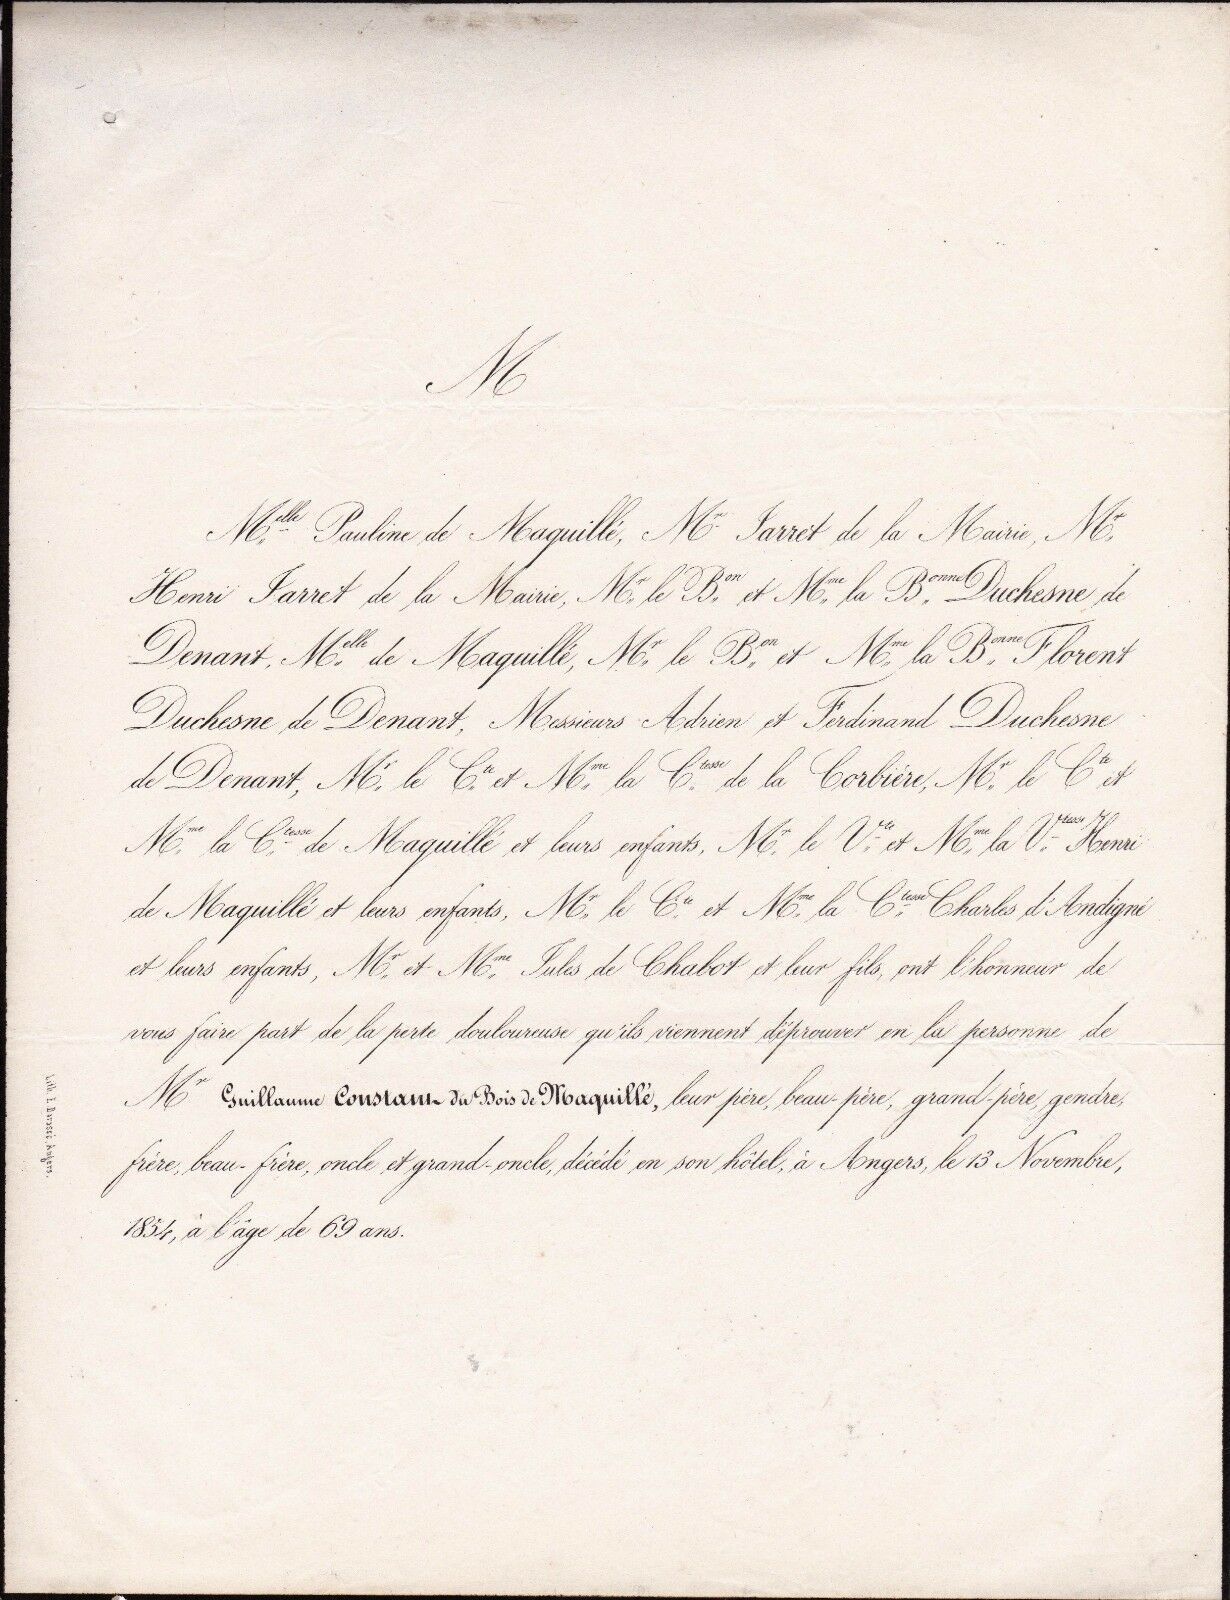 M
M.elle Pauline de Maquillé, Mr Jarret de la Mairie, Mr.
Henri Jarret de la Mairie, Mr. le B.on et Mme. la B.onne Duchesne de
Denant, M.elle de Maquillé, Mr. le B.on et Mme. la B.onne Florent
Duchesne de Denant, Messieurs Adrien et Ferdinand Duchesne
de Denant, Mr. le C.te et Mme. la C.tesse de la Corbière, Mr. le C.te et
Mme. la C.tesse de Maquillé et leurs enfants, Mr. le V.te et Mme. la V.tesse Henri
de Maquillé et leurs enfants, Mr. le C.te et Mme. la C.tesse Charles d'Andigné
et leurs enfants, Mr. et Mme. Jules de Chabot et leur fils, ont l'honneur de
vous faire part de la perte douloureuse qu'ils viennent d'éprouver en la personne de
Mr Guillaume Constant du Bois de Maquillé, leur père, beau-père, grand-père, gendre,
frère, beau-frère, oncle et grand-oncle, décédé en son hôtel, à Angers, le 13 Novembre,
1854, à l'âge de 69 ans.
Lith. L. Barassé, Angers.